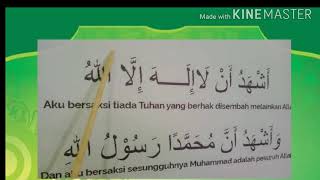 Made with KINEMASTER
أَشْهَدُ أَنْ لَاإِلَـــهَ إِلَّا اللهُ
Aku bersaksi tiada Tuhan yang berhak disembah melainkan Alla
وَأَشْهَدُ أَنَّ مُحَمَّدًا رَسُوْلُ اللهِ
Dan aku bersaksi sesungguhnya Muhammad adalah pesuruh Alla